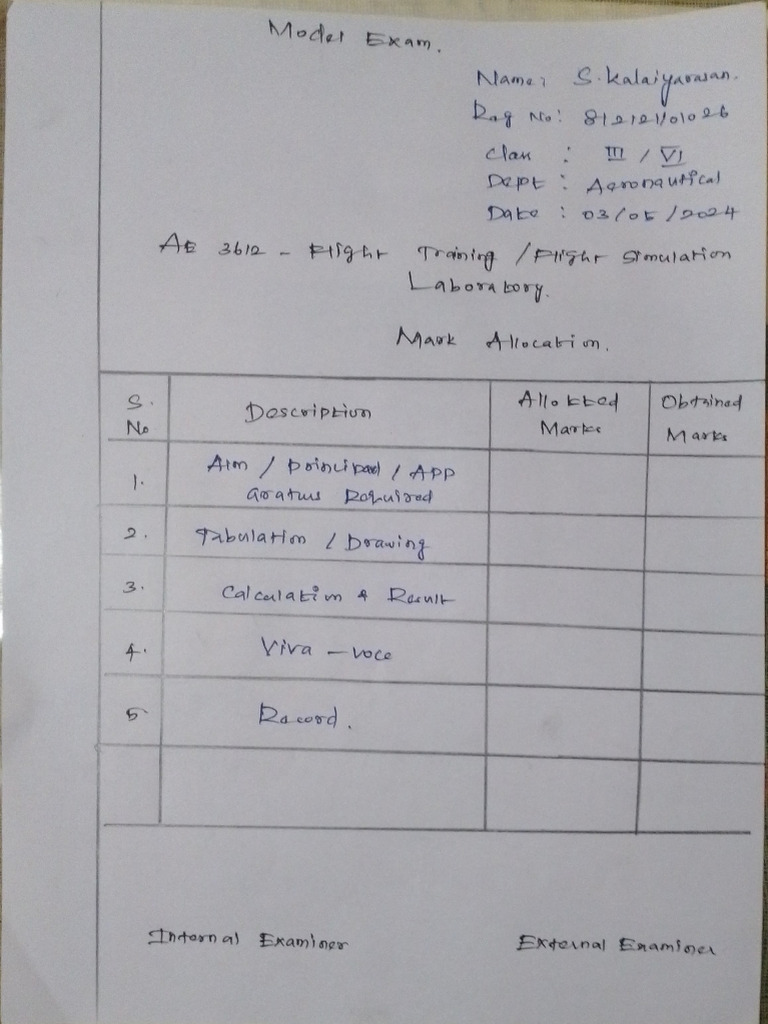 Model Exam.
Name: S. Kalaiyarasan.
Reg No: 812121101026
Class : III / VI
Dept : Aeronautical
Date : 03/05/2024
AE 3612 - Flight Training / Flight Simulation
Laboratory.
Mark Allocation.
S. No Description Allotted Marks Obtained Marks
1. Aim / principal / APP
aratus Required
2. Tabulation / Drawing
3. Calculation & Result
4. Viva - voce
5 Record.
Internal Examiner External Examiner